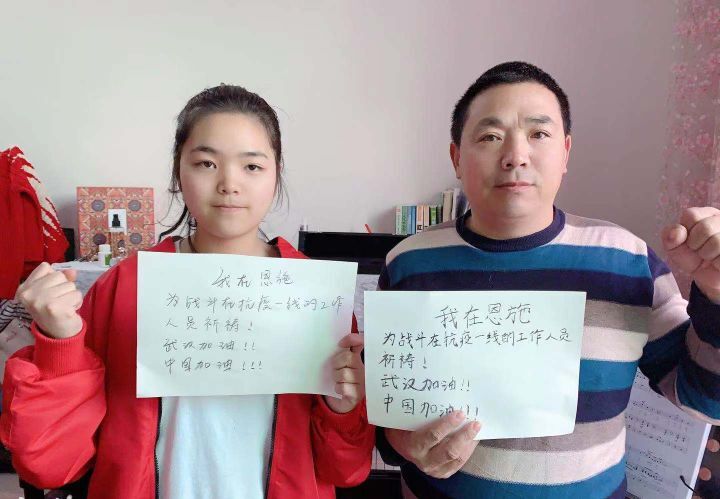 我在恩施
为战斗在抗疫一线的工作
人员祈祷！
武汉加油！！
中国加油！！！
我在恩施
为战斗在抗疫一线的工作人员
祈祷！
武汉加油！！
中国加油！！！